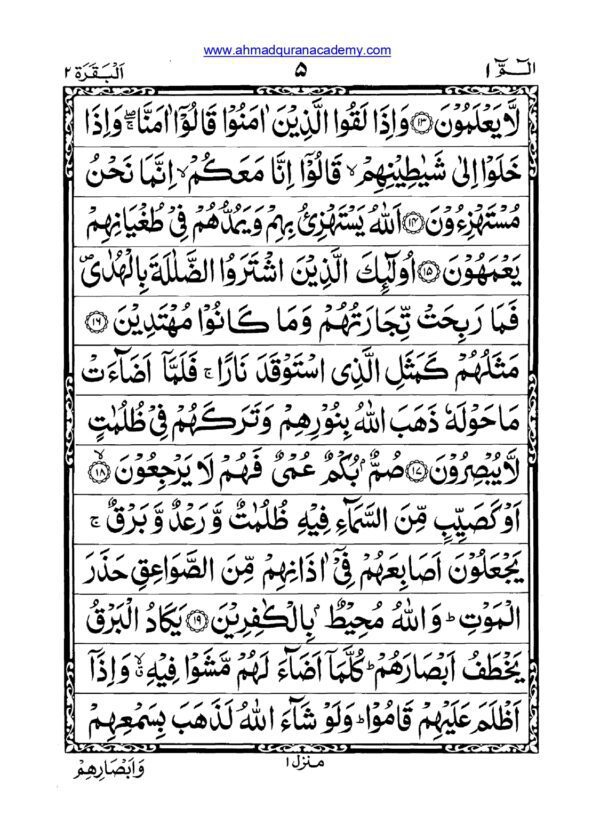 www.ahmadquranacademy.com
الٓمّٓ ١ ۵ اَلْبَقَرَة ٢
لَّا يَعْلَمُوْنَ ﴿١٣﴾ وَاِذَا لَقُوا الَّذِيْنَ اٰمَنُوْا قَالُوْٓا اٰمَنَّا ۚۖ وَاِذَا
خَلَوْا اِلٰى شَيٰطِيْنِهِمْ ۙ قَالُوْٓا اِنَّا مَعَكُمْ ۙ اِنَّمَا نَحْنُ
مُسْتَهْزِءُوْنَ ﴿١٤﴾ اَللّٰهُ يَسْتَهْزِئُ بِهِمْ وَيَمُدُّهُمْ فِيْ طُغْيَانِهِمْ
يَعْمَهُوْنَ ﴿١٥﴾ اُولٰٓئِكَ الَّذِيْنَ اشْتَرَوُا الضَّلٰلَةَ بِالْهُدٰى ۪
فَمَا رَبِحَتْ تِّجَارَتُهُمْ وَمَا كَانُوْا مُهْتَدِيْنَ ﴿١٦﴾
مَثَلُهُمْ كَمَثَلِ الَّذِى اسْتَوْقَدَ نَارًا ۚ فَلَمَّآ اَضَآءَتْ
مَا حَوْلَهٗ ذَهَبَ اللّٰهُ بِنُوْرِهِمْ وَتَرَكَهُمْ فِيْ ظُلُمٰتٍ
لَّا يُبْصِرُوْنَ ﴿١٧﴾ صُمٌّۢ بُكْمٌ عُمْيٌ فَهُمْ لَا يَرْجِعُوْنَ ۙ﴿١٨﴾
اَوْ كَصَيِّبٍ مِّنَ السَّمَآءِ فِيْهِ ظُلُمٰتٌ وَّرَعْدٌ وَّبَرْقٌ ۚ
يَجْعَلُوْنَ اَصَابِعَهُمْ فِيْٓ اٰذَانِهِمْ مِّنَ الصَّوَاعِقِ حَذَرَ
الْمَوْتِ ؕ وَاللّٰهُ مُحِيْطٌۢ بِالْكٰفِرِيْنَ ﴿١٩﴾ يَكَادُ الْبَرْقُ
يَخْطَفُ اَبْصَارَهُمْ ؕ كُلَّمَآ اَضَآءَ لَهُمْ مَّشَوْا فِيْهِ ۙ وَاِذَآ
اَظْلَمَ عَلَيْهِمْ قَامُوْا ؕ وَلَوْ شَآءَ اللّٰهُ لَذَهَبَ بِسَمْعِهِمْ
منزل ١
وَاَبْصَارِهِمْ